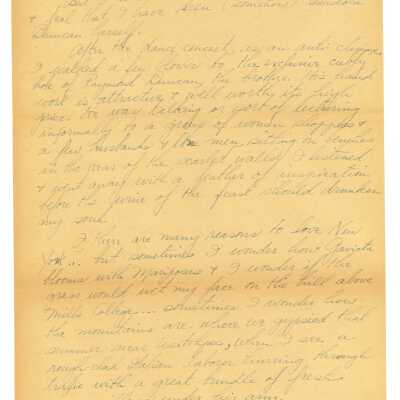 & feel that I have seen (somehow) Isadora
Duncan herself.
After the dance concert, as an anti climax,
I walked a few doors to the exclusive cubby
hole of Raymond Duncan, the brother. His hand
work is attractive & well worth its high
price. He was talking or sort of lecturing
informally to a group of women shoppers &
a few husbands & men sitting on benches
in the rear of the scarlet walls. I listened
& went away with a feather of inspiration
before the wine of the feast should drunken
my soul.
There are many reasons to love New
York... but sometimes I wonder how
blooms with Mariposas & I wonder if the
grass would wet my face on the hill above
Mills College... sometimes I wonder how
the mountains are where we gypsied that
summer near when I see a
rough clad Italian laborer hurrying through
traffic with a great bundle of fresh
under his arm.